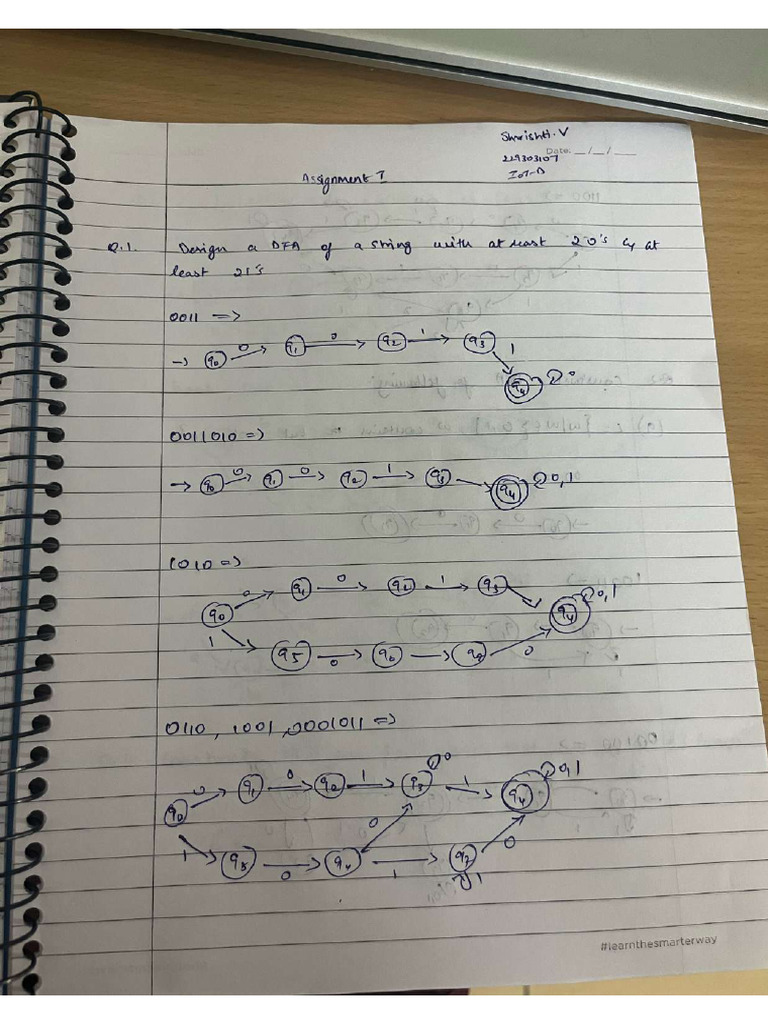 Shrishti.V
Date. __/__/__
219303107
IOT-B
Assignment I
Q.1. Design a DFA of a string with at least 2 0's & at
least 2 1's
0011 =>
→ q0 0 q1 0 q2 1 q3
1
q4 0
0011010 =>
→ q0 0 q1 0 q2 1 q3 q4 0,1
1010 =>
0 q1 0 q2 1 q3 0,1
q0 q4
1 q5 0 q6 0
0110, 1001, 0001011 =>
0 q1 0 q2 1 q3 0 1 q4 0,1
q0 0
1 q5 0 1 q7 0
1
#learnthesmarterway